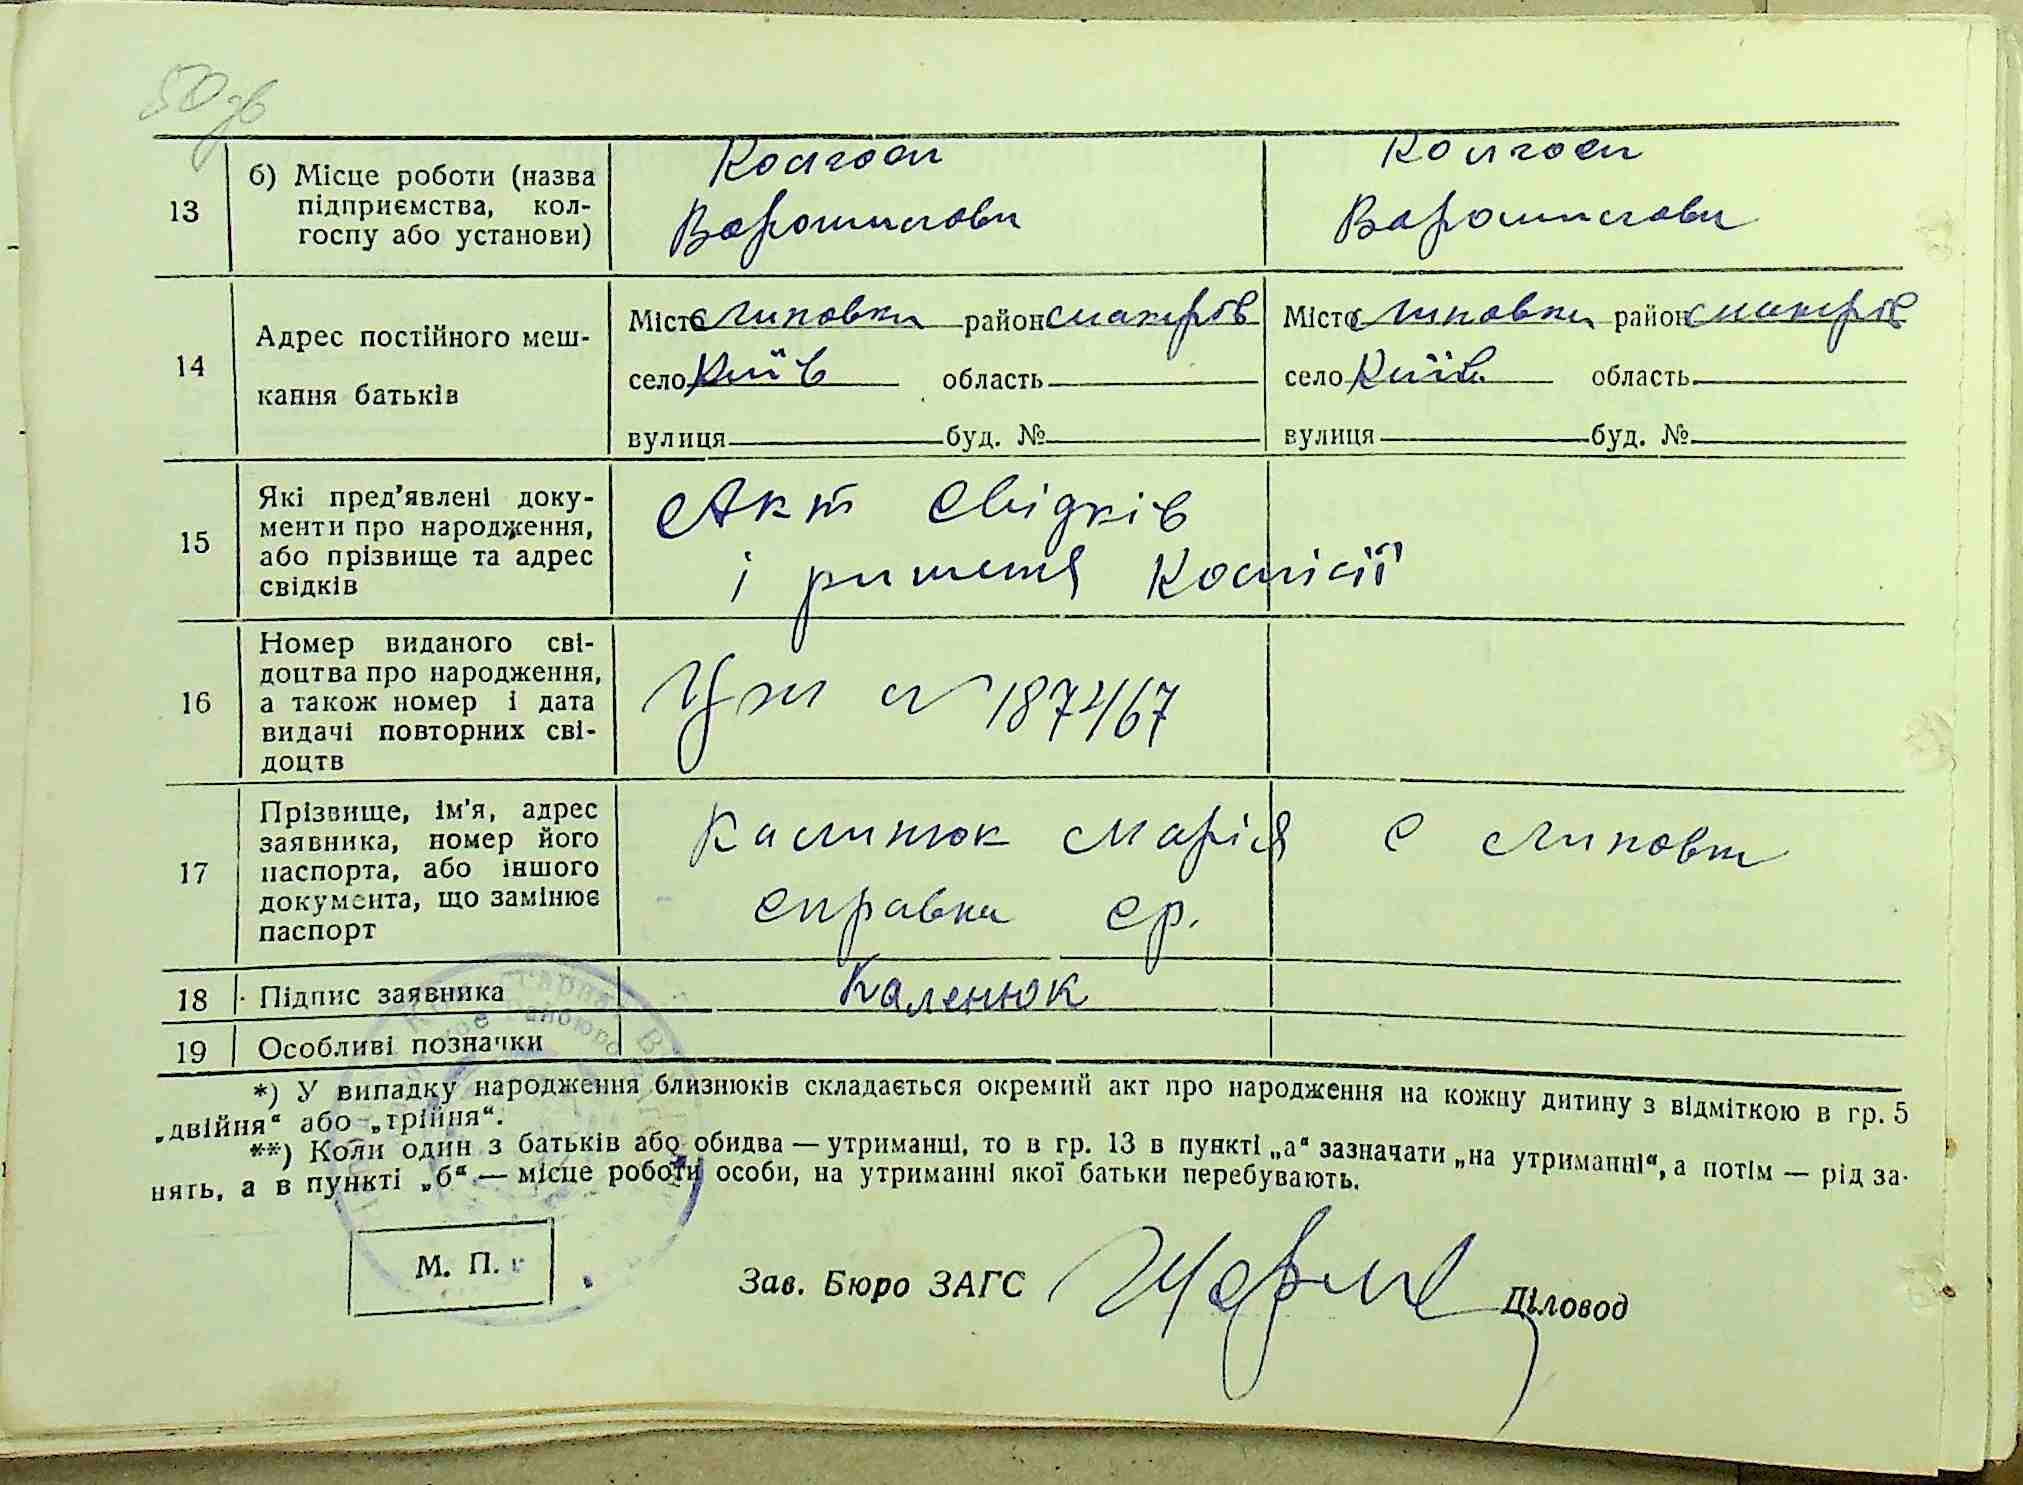 50 зв
13 б) Місце роботи (назва підприємства, колгоспу або установи) Колгосп Колгосп
Ворошилова Ворошилова
14 Адрес постійного мешкання батьків
Місто Липовка район Макарів Місто Липовка район Макарів
село Київ область село Київ область
вулиця буд. № вулиця буд. №
15 Які пред'явлені документи про народження, або прізвище та адрес свідків
Акт свідків
і ришення Комісії
16 Номер виданого свідоцтва про народження, а також номер і дата видачі повторних свідоцтв
№ 187467
17 Прізвище, ім'я, адрес заявника, номер його паспорта, або іншого документа, що замінює паспорт
Калинюк Марія с Липовка
справка ср.
18 Підпис заявника Каленюк
19 Особливі позначки
*) У випадку народження близнюків складається окремий акт про народження на кожну дитину з відміткою в гр. 5
„двійня“ або „трійня“.
**) Коли один з батьків або обидва — утриманці, то в гр. 13 в пункті „а“ зазначати „на утриманні“, а потім — рід за-
нять, а в пункті „б“ — місце роботи особи, на утриманні якої батьки перебувають.
М. П. Зав. Бюро ЗАГС Діловод